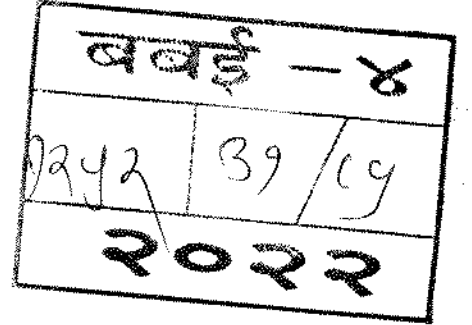 बबई - ४
१२५२ ३१/८५
२०२२